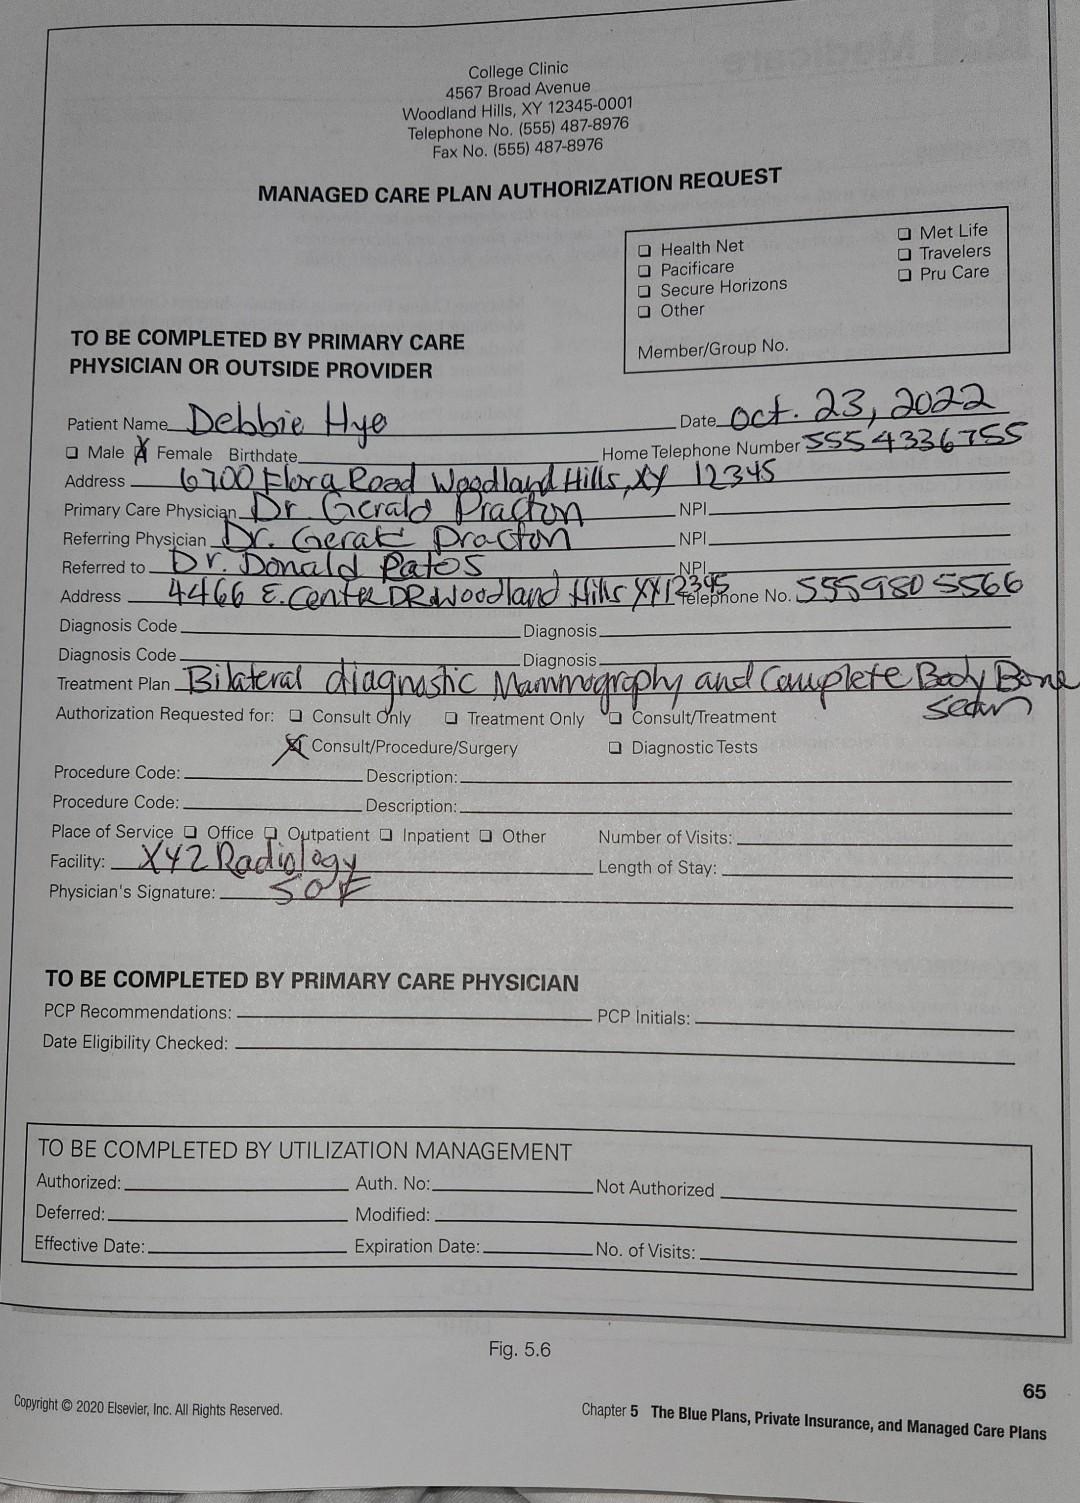 College Clinic
4567 Broad Avenue
Woodland Hills, XY 12345-0001
Telephone No. (555) 487-8976
Fax No. (555) 487-8976
MANAGED CARE PLAN AUTHORIZATION REQUEST
❑ Health Net ❑ Met Life
❑ Pacificare ❑ Travelers
❑ Secure Horizons ❑ Pru Care
❑ Other
Member/Group No.
TO BE COMPLETED BY PRIMARY CARE
PHYSICIAN OR OUTSIDE PROVIDER
Patient Name Debbie Hye Date Oct. 23, 2022
❑ Male X Female Birthdate Home Telephone Number 555 4336755
Address 6700 Flora Road Woodland Hills, XY 12345
Primary Care Physician Dr. Gerald Practon NPI
Referring Physician Dr. Practon NPI
Referred to Dr. Donald Patos NPI
Address 4466 E. Center DR Woodland Hills XY 12345 Telephone No. 555 980 5566
Diagnosis Code Diagnosis
Diagnosis Code Diagnosis
Treatment Plan Bilateral diagnostic Mammography and Complete Body Bone
scan
Authorization Requested for: ❑ Consult Only ❑ Treatment Only ❑ Consult/Treatment
X Consult/Procedure/Surgery ❑ Diagnostic Tests
Procedure Code: Description:
Procedure Code: Description:
Place of Service ❑ Office ❑ Outpatient ❑ Inpatient ❑ Other Number of Visits:
Facility: XYZ Radiology Length of Stay:
Physician's Signature: SOF
TO BE COMPLETED BY PRIMARY CARE PHYSICIAN
PCP Recommendations: PCP Initials:
Date Eligibility Checked:
TO BE COMPLETED BY UTILIZATION MANAGEMENT
Authorized: Auth. No: Not Authorized
Deferred: Modified:
Effective Date: Expiration Date: No. of Visits:
Fig. 5.6
65
Copyright © 2020 Elsevier, Inc. All Rights Reserved.
Chapter 5 The Blue Plans, Private Insurance, and Managed Care Plans